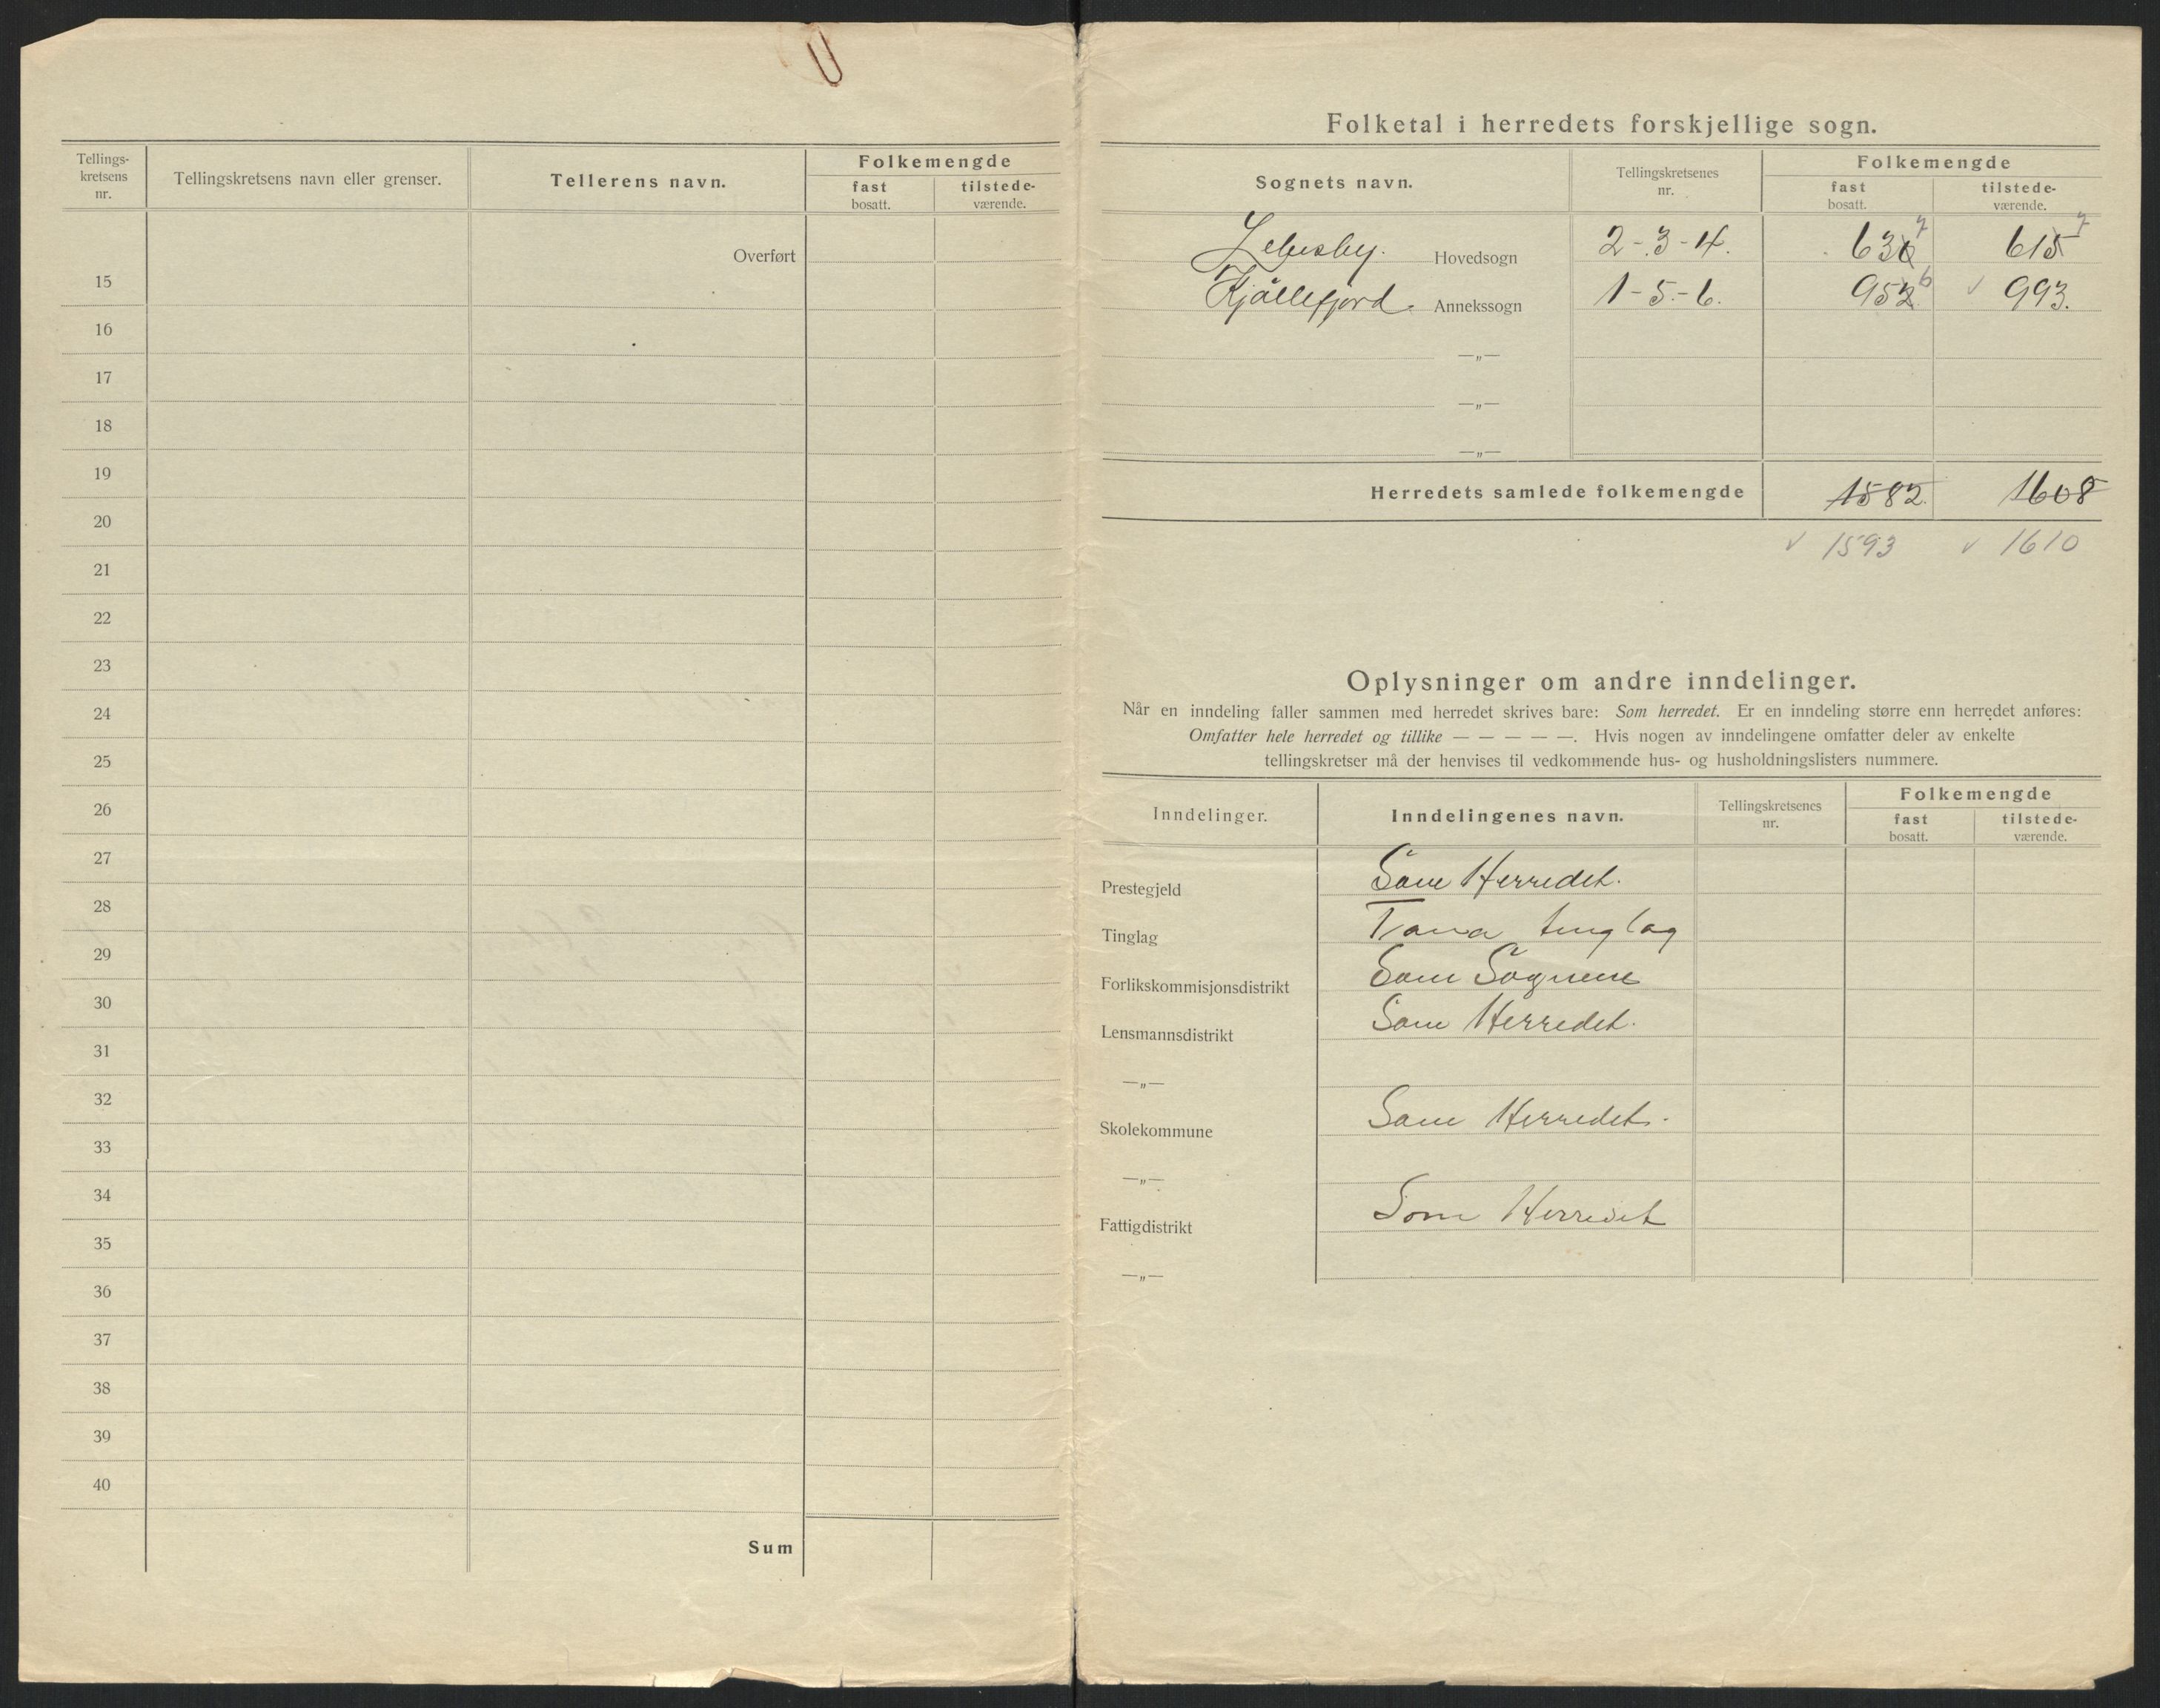 Tellings-
kretsens
nr.
Tellingskretsens navn eller grenser.
Tellerens navn.
Folkemengde
fast
bosatt.
tilstede-
værende.
Overført
15
16
17
18
19
20
21
22
23
24
25
26
27
28
29
30
31
32
33
34
35
36
37
38
39
40
Sum
Folketal i herredets forskjellige sogn.
Sognets navn.
Tellingskretsenes
nr.
Folkemengde
fast
bosatt.
tilstede-
værende.
Lebesby. Hovedsogn 2-3-4. 630 7 615 7
Kjöllefjord. Annekssogn 1-5-6. 952 6 ✓ 993.
—„—
—„—
—„—
Herredets samlede folkemengde 1582 1608
✓ 1593 ✓ 1610
Oplysninger om andre inndelinger.
Når en inndeling faller sammen med herredet skrives bare: Som herredet. Er en inndeling større enn herredet anføres:
Omfatter hele herredet og tillike — — — — —. Hvis nogen av inndelingene omfatter deler av enkelte
tellingskretser må der henvises til vedkommende hus- og husholdningslisters nummere.
Inndelinger.
Inndelingenes navn.
Tellingskretsenes
nr.
Folkemengde
fast
bosatt.
tilstede-
værende.
Prestegjeld Som Herredet.
Tinglag Tana tinglag
Forlikskommisjonsdistrikt Som Sognene
Lensmannsdistrikt Som Herredet.
—„—
Skolekommune Som Herredet.
—„—
Fattigdistrikt Som Herredet
—„—